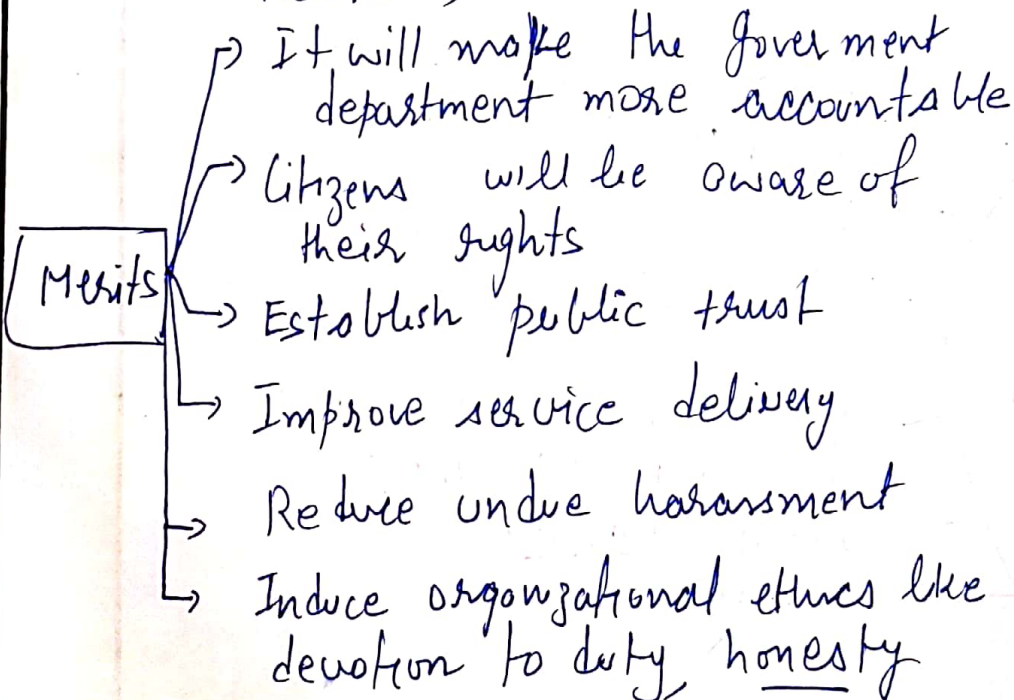 It will make the goverment
department more accountable
Citizens will be aware of
their rights
Merits
Establish public trust
Improve service delivery
Reduce undue harassment
Induce organizational ethics like
devotion to duty, honesty